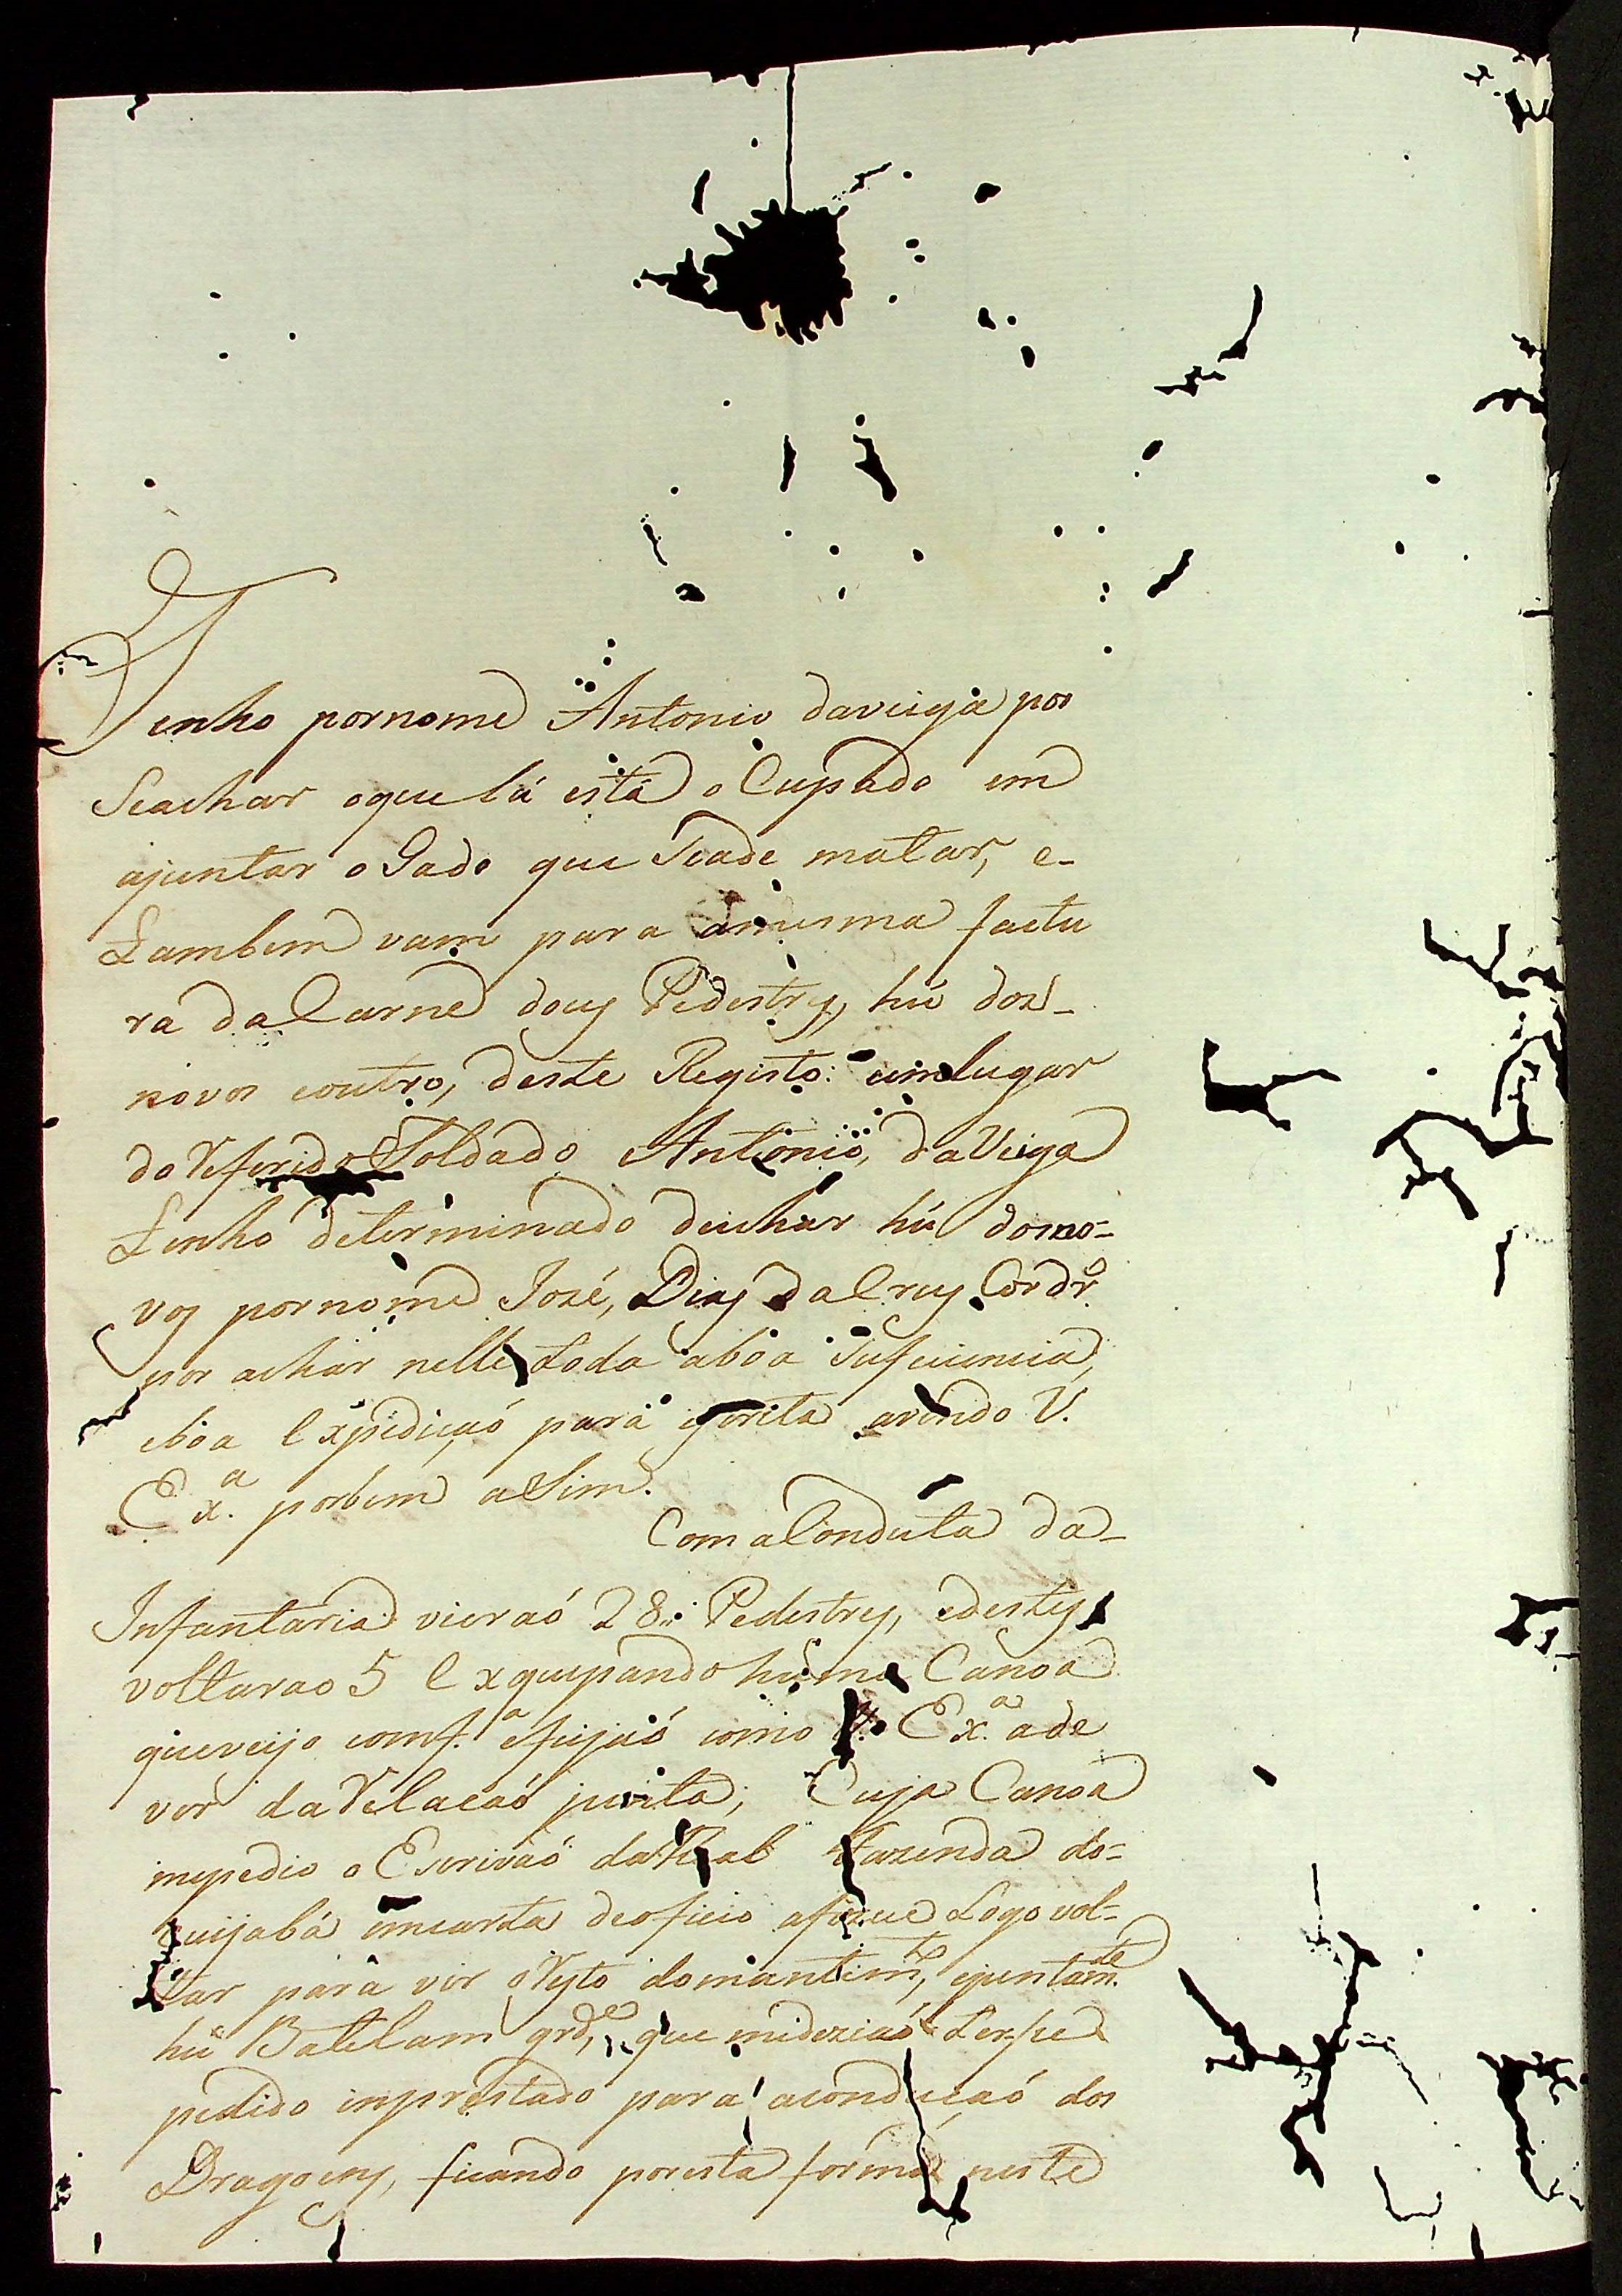 Tenho pornome Antonio daveiga por
Seachar oque lá está o Cupado em
ajuntar o Gado que Seade matar, e-
Lambem vam para amesma factu
ra da Carne douz Pedestrez, hú doz-
novos eoutro, deste Registo: emlugar
do Referido Soldado Antonio, da Veiga
Tenho determinado deichar hú dono-
voz pornome José, Diaz da Cruz Cordr.º
por achar nelle toda aboa Suficiencia,
eboa Expedicaó para escrita avendo V.
Ex.ª porbem aSim.
Com aConduta da-
Infantaria vieraó 28.. Pedestrez, edestez
voltarao 5 Exquipando húma Canoa
queveijo comf.ª efeijaó como V. Ex.ª ade
ver da Relacaó junta, Cuja Canoa
mepedio o Escrivaó da Real Fazenda do-
Cuijabá emcarta deoficio afizece Logo vol-
tar para vir o Resto domantim.to, ejuntam.te
hú Batelam grd.e, que medeziaó Terse
pedido inprestado para aconducaó dos
Dragoenz, ficando poresta forma neste